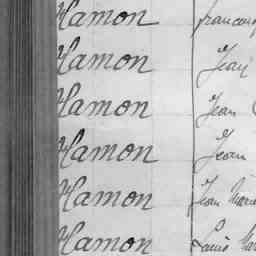 Hamon
Hamon Jean
Hamon Jean
Hamon Jean
Hamon Jean Marie
Hamon Louis